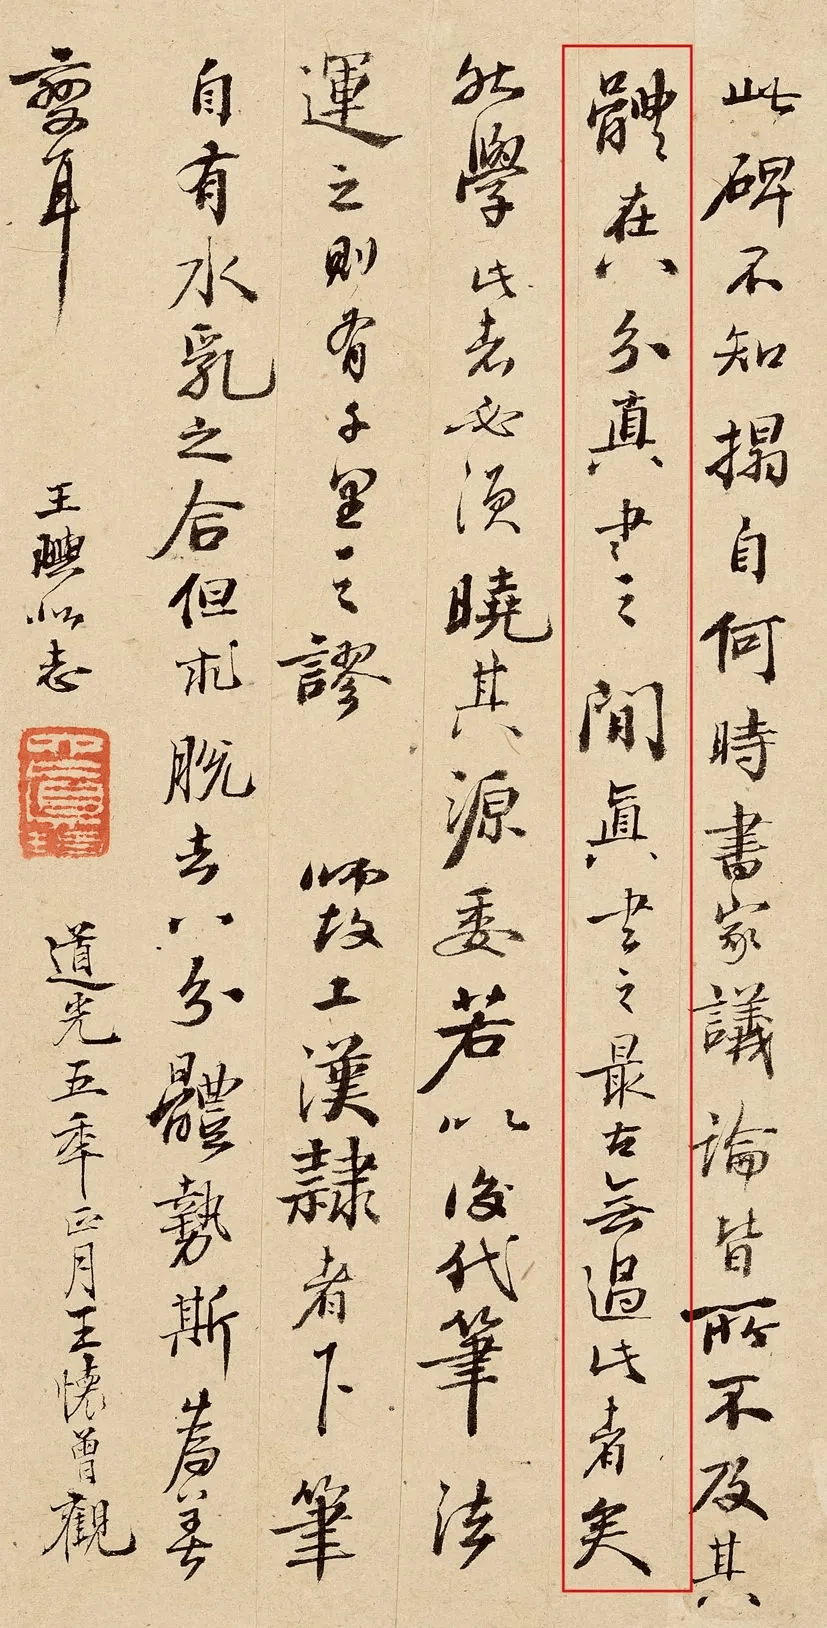 此碑不知搨自何時書家議論皆所不及其
體在八分真書之間眞書之最古無過此者矣
然學此者必須曉其源委若以後代筆法
運之則有千里之謬 師故工漢隸者下筆
自有水乳之合但求脫去八分體勢斯為善
變耳
王 志
道光五秊正月王懷曾觀